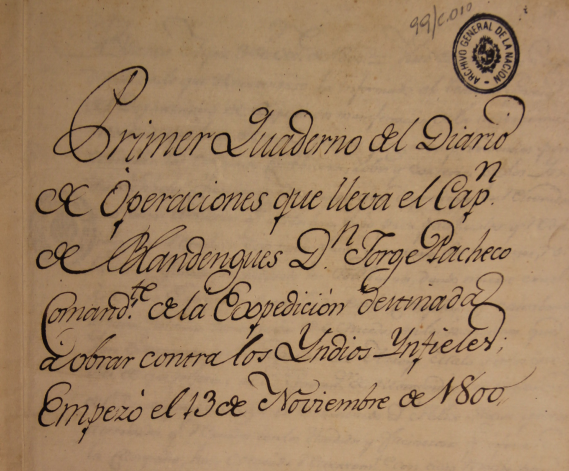 99/C.010
ARCHIVO GENERAL DE LA NACION
Primer Quaderno del Diario
de Operaciones que lleva el Capn.
de Blandengues Dn Jorge Pacheco
Comandte. de la Expedición destinada
a obrar contra los Yndios Ynfieles;
Empezó el 13 de Noviembre de 1800